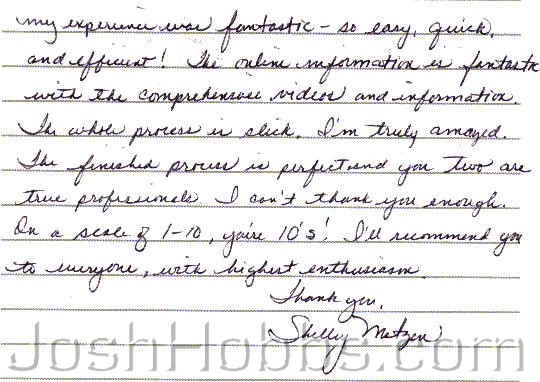 my experience was fantastic - so easy, quick,
and efficient! The online information is fantastic
with the comprehensive videos and information.
The whole process is slick. I'm truly amazed.
The finished process is perfect and you two are
true professionals I can't thank you enough.
On a scale of 1-10, you're 10's! I'll recommend you
to everyone, with highest enthusiasm.
Thank you,
Shelly Metzen
JoshHobbs.com